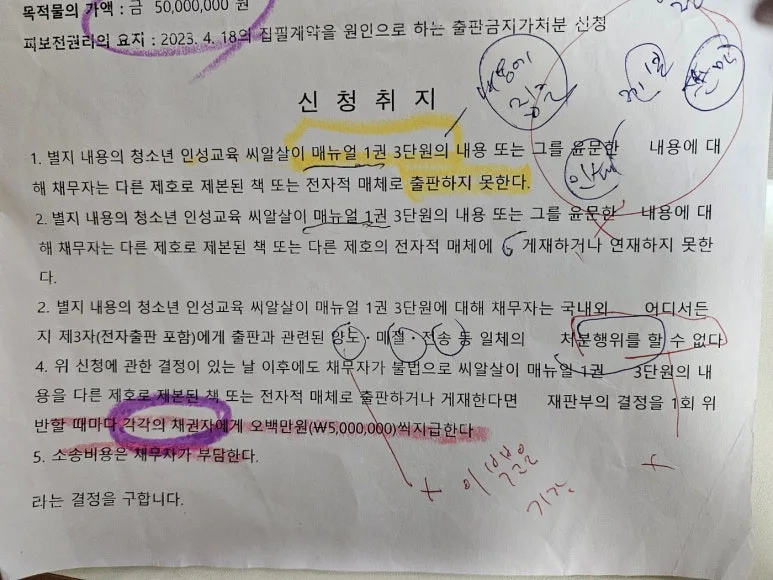 목적물의 가액 : 금 50,000,000 원
피보전권리의 요지 : 2023. 4. 18의 집필계약을 원인으로 하는 출판금지가처분 신청
신 청 취 지
1. 별지 내용의 청소년 인성교육 씨알살이 매뉴얼 1권 3단원의 내용 또는 그를 윤문한 내용에 대
해 채무자는 다른 제호로 제본된 책 또는 전자적 매체로 출판하지 못한다.
2. 별지 내용의 청소년 인성교육 씨알살이 매뉴얼 1권 3단원의 내용 또는 그를 윤문한 내용에 대
해 채무자는 다른 제호로 제본된 책 또는 다른 제호의 전자적 매체에 게재하거나 연재하지 못한
다.
2. 별지 내용의 청소년 인성교육 씨알살이 매뉴얼 1권 3단원에 대해 채무자는 국내외 어디서든
지 제3자(전자출판 포함)에게 출판과 관련된 양도·매절·전송 등 일체의 처분행위를 할 수 없다
4. 위 신청에 관한 결정이 있는 날 이후에도 채무자가 불법으로 씨알살이 매뉴얼 1권 3단원의 내
용을 다른 제호로 제본된 책 또는 전자적 매체로 출판하거나 게재한다면 재판부의 결정을 1회 위
반할 때마다 각각의 채권자에게 오백만원(₩5,000,000)씩지급한다
5. 소송비용은 채무자가 부담한다.
이 부분은
기각
라는 결정을 구합니다.